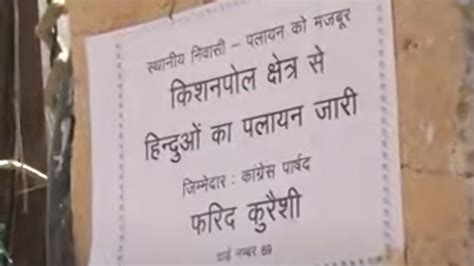 स्थानीय निवासी – पलायन को मजबूर
किशनपोल क्षेत्र से
हिन्दुओं का पलायन जारी
जिम्मेदार : कांग्रेस पार्षद
फरिद कुरैशी
वार्ड नम्बर 69